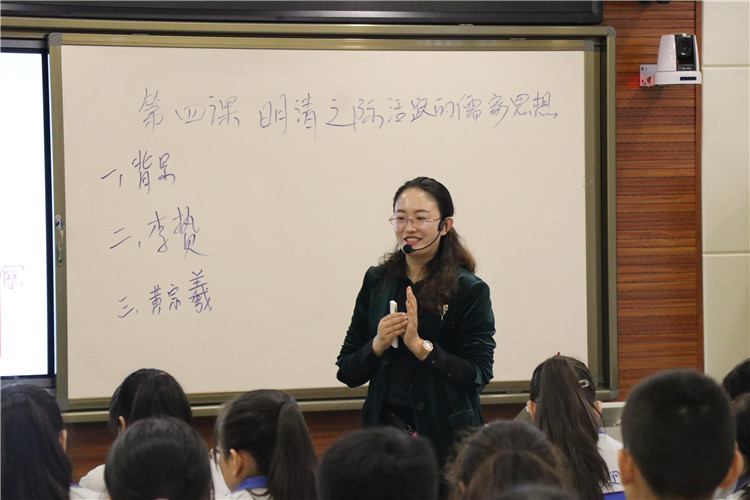 第四课 明清之际活跃的儒家思想
一、背景
二、李贽
三、黄宗羲